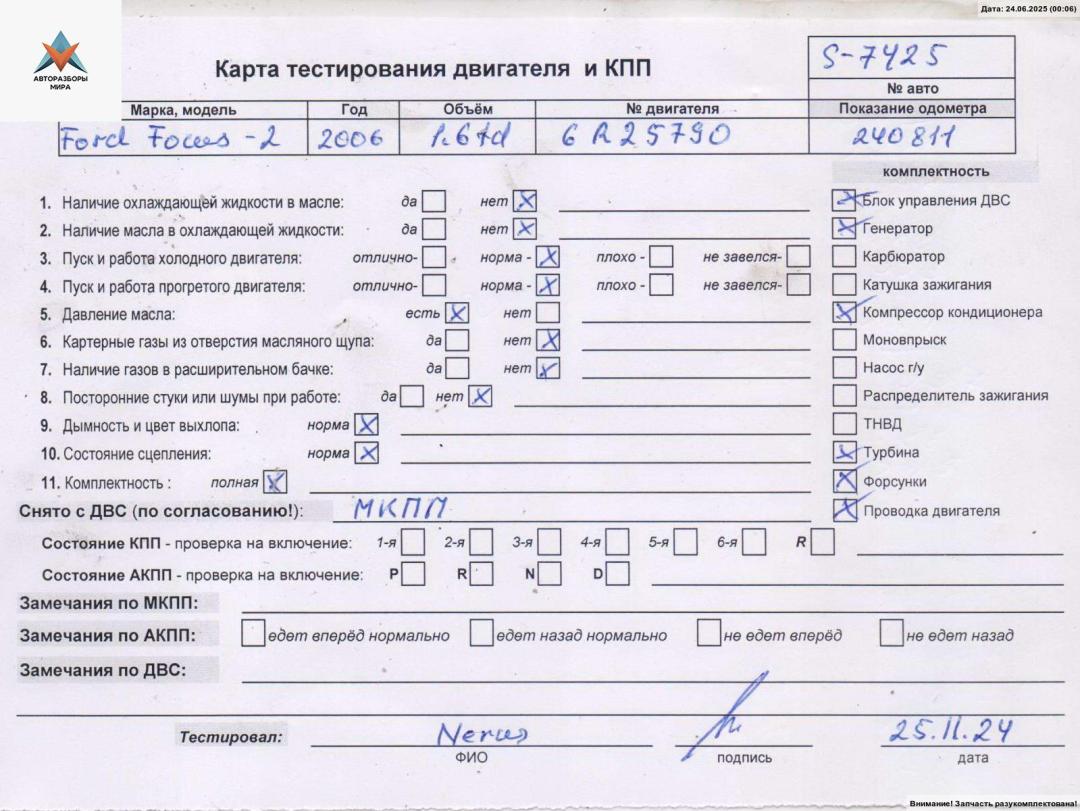 Дата: 24.06.2025 (00:06)
АВТОРАЗБОРЫ
МИРА
Карта тестирования двигателя и КПП
S-7425
№ авто
Марка, модель Год Объём № двигателя Показание одометра
Ford Focus -2 2006 1.6td 6R25790 240811
комплектность
1. Наличие охлаждающей жидкости в масле: да нет Блок управления ДВС
2. Наличие масла в охлаждающей жидкости: да нет Генератор
3. Пуск и работа холодного двигателя: отлично- норма - плохо - не завелся- Карбюратор
4. Пуск и работа прогретого двигателя: отлично- норма - плохо - не завелся- Катушка зажигания
5. Давление масла: есть нет Компрессор кондиционера
6. Картерные газы из отверстия масляного щупа: да нет Моновпрыск
7. Наличие газов в расширительном бачке: да нет Насос г/у
8. Посторонние стуки или шумы при работе: да нет Распределитель зажигания
9. Дымность и цвет выхлопа: норма ТНВД
10. Состояние сцепления: норма Турбина
11. Комплектность : полная Форсунки
Снято с ДВС (по согласованию!): МКПП Проводка двигателя
Состояние КПП - проверка на включение: 1-я 2-я 3-я 4-я 5-я 6-я R
Состояние АКПП - проверка на включение: P R N D
Замечания по МКПП:
Замечания по АКПП: едет вперёд нормально едет назад нормально не едет вперёд не едет назад
Замечания по ДВС:
Тестировал: 25.11.24
ФИО подпись дата
Внимание! Запчасть разукомплектована!